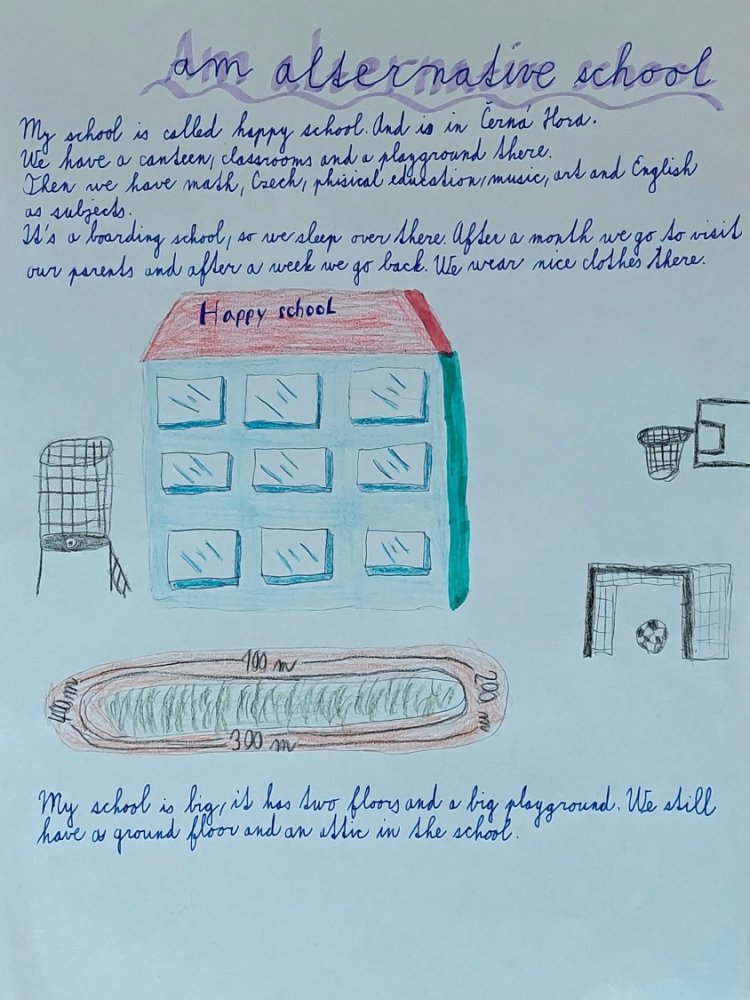 Am alternative school
My school is called happy school. And is in Černá Hora.
We have a canteen, classrooms and a playground there.
Then we have math, Czech, phisical education, music, art and English
as subjects.
It's a boarding school, so we sleep over there. After a month we go to visit
our parents and after a week we go back. We wear nice clothes there.
Happy school
100 m
400 m
200 m
300 m
My school is big, it has two floors and a big playground. We still
have a ground floor and an attic in the school.